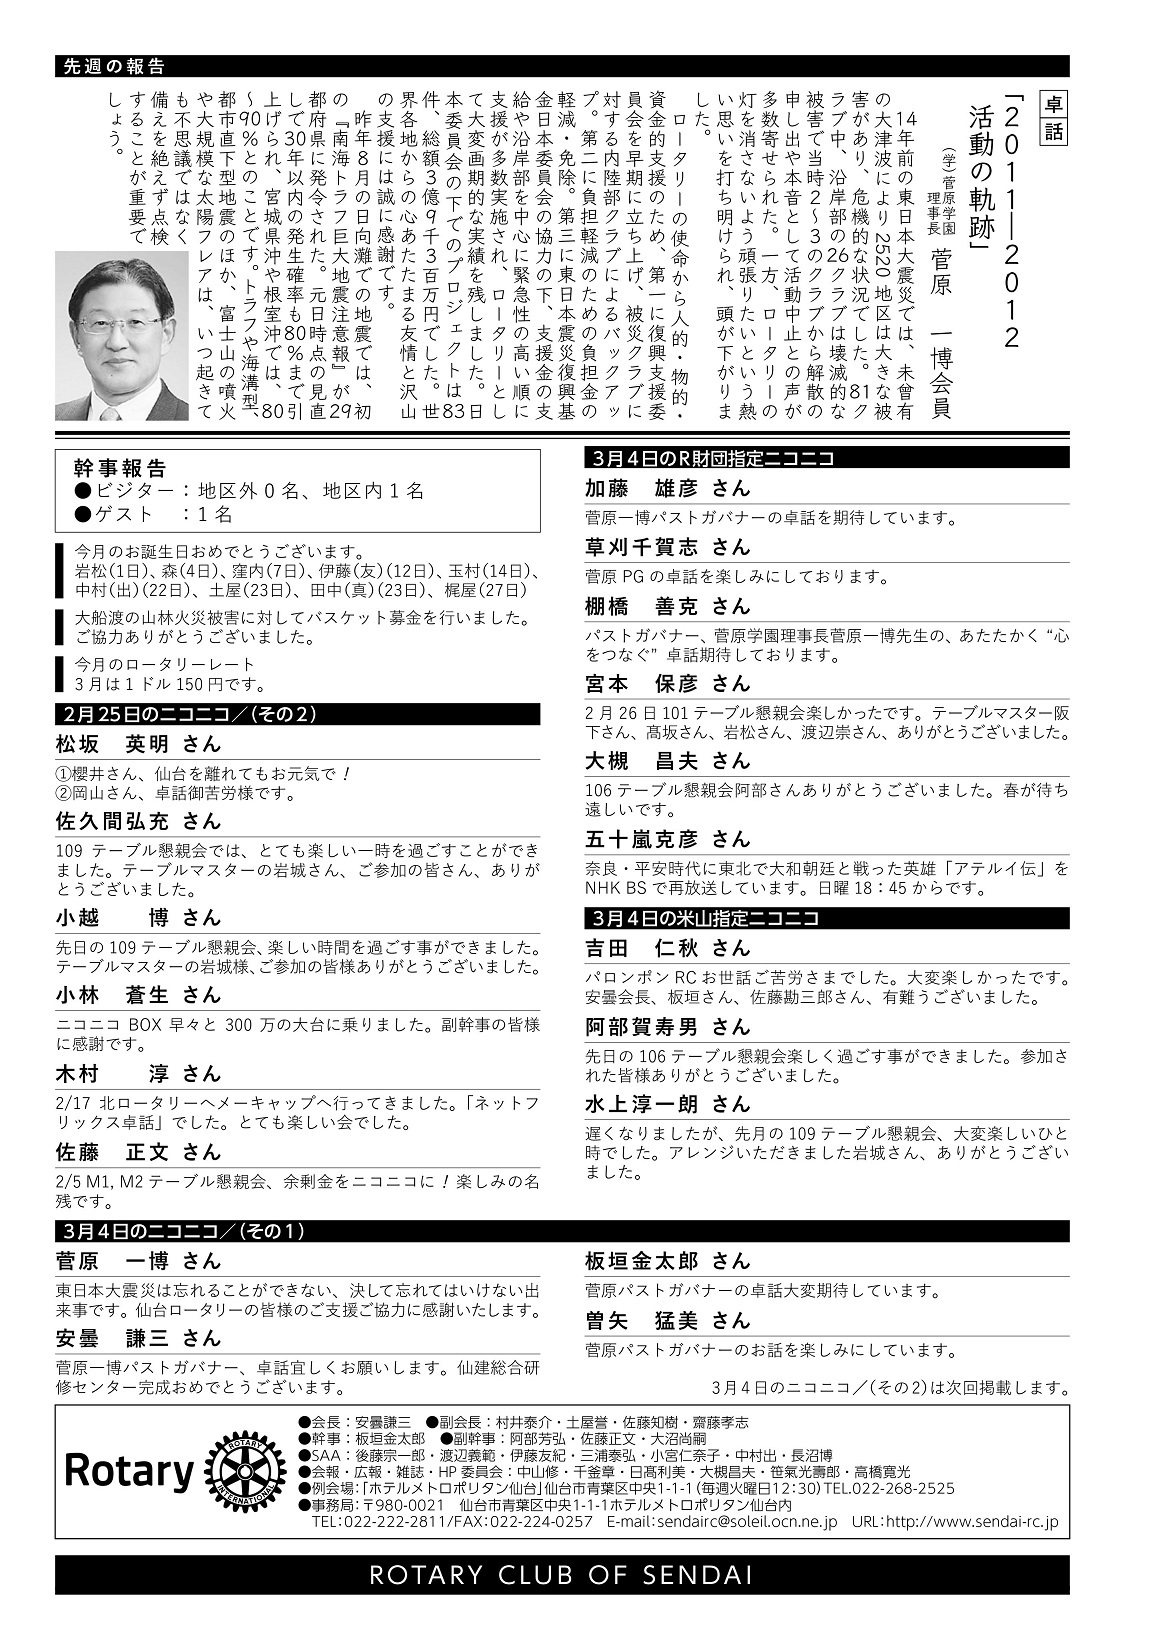 先週の報告
卓話
「2011―2012
活動の軌跡」
(学)菅原学園
理事長 菅原 一博会員
14年前の東日本大震災では、未曽有
の大津波により2520地区は大きな被
害があり、危機的な状況でした。81ク
ラブ中、沿岸部の26クラブは壊滅的な
被害で当時2～3のクラブから解散の
申し出や本音として活動中止との声が
多数寄せられた。一方、ロータリーの
灯を消さないよう頑張りたいという熱
い思いを打ち明けられ、頭が下がりま
した。
ロータリーの使命から人的・物的・
資金的支援のため、第一に復興支援委
員会を早期に立ち上げ、被災クラブに
対する内陸部クラブによるバックアッ
プ。第二に負担軽減のための負担金の
軽減・免除。第三に東日本震災復興基
金日本委員会の協力の下、支援金の支
給や沿岸部を中心に緊急性の高い順に
支援が多数実施され、ロータリーとし
て大変画期的な実績を残しました。日
本委員会の下でのプロジェクトは83
件、総額3億9千3百万円でした。世
界各地からの心あたたまる友情と沢山
の支援には誠に感謝です。
昨年8月の日向灘での地震では、初
の『南海トラフ巨大地震注意報』が29
都府県に発令された。元日時点の見直
しで30年以内の発生確率も80％まで引
上げられ、宮城県沖や根室沖では、80
～90％とのことです。トラフや海溝型、
都市直下型地震のほか、富士山の噴火
や大規模な太陽フレアは、いつ起きて
も不思議ではなく
備えを絶えず点検
することが重要で
しょう。
幹事報告
●ビジター：地区外0名、地区内1名
●ゲスト　：1名
今月のお誕生日おめでとうございます。
岩松(1日)、森(4日)、窪内(7日)、伊藤(友)(12日)、玉村(14日)、
中村(出)(22日)、土屋(23日)、田中(真)(23日)、梶屋(27日)
大船渡の山林火災被害に対してバスケット募金を行いました。
ご協力ありがとうございました。
今月のロータリーレート
3月は1ドル150円です。
2月25日のニコニコ／(その2)
松坂　英明 さん
①櫻井さん、仙台を離れてもお元気で！
②岡山さん、卓話御苦労様です。
佐久間弘充 さん
109 テーブル懇親会では、とても楽しい一時を過ごすことができ
ました。テーブルマスターの岩城さん、ご参加の皆さん、ありが
とうございました。
小越　　博 さん
先日の109テーブル懇親会、楽しい時間を過ごす事ができました。
テーブルマスターの岩城様、ご参加の皆様ありがとうございました。
小林　蒼生 さん
ニコニコ BOX 早々と 300 万の大台に乗りました。副幹事の皆様
に感謝です。
木村　　淳 さん
2/17 北ロータリーへメーキャップへ行ってきました。「ネットフ
リックス卓話」でした。とても楽しい会でした。
佐藤　正文 さん
2/5 M1, M2 テーブル懇親会、余剰金をニコニコに！楽しみの名
残です。
3月4日のR財団指定ニコニコ
加藤　雄彦 さん
菅原一博パストガバナーの卓話を期待しています。
草刈千賀志 さん
菅原 PG の卓話を楽しみにしております。
棚橋　善克 さん
パストガバナー、菅原学園理事長菅原一博先生の、あたたかく “心
をつなぐ” 卓話期待しております。
宮本　保彦 さん
2月26日101テーブル懇親会楽しかったです。テーブルマスター阪
下さん、髙坂さん、岩松さん、渡辺崇さん、ありがとうございました。
大槻　昌夫 さん
106テーブル懇親会阿部さんありがとうございました。春が待ち
遠しいです。
五十嵐克彦 さん
奈良・平安時代に東北で大和朝廷と戦った英雄「アテルイ伝」を
NHK BS で再放送しています。日曜18：45からです。
3月4日の米山指定ニコニコ
吉田　仁秋 さん
パロンポン RC お世話ご苦労さまでした。大変楽しかったです。
安曇会長、板垣さん、佐藤勘三郎さん、有難うございました。
阿部賀寿男 さん
先日の106テーブル懇親会楽しく過ごす事ができました。参加さ
れた皆様ありがとうございました。
水上淳一朗 さん
遅くなりましたが、先月の109テーブル懇親会、大変楽しいひと
時でした。アレンジいただきました岩城さん、ありがとうござい
ました。
3月4日のニコニコ／(その1)
菅原　一博 さん
東日本大震災は忘れることができない、決して忘れてはいけない出
来事です。仙台ロータリーの皆様のご支援ご協力に感謝いたします。
安曇　謙三 さん
菅原一博パストガバナー、卓話宜しくお願いします。仙建総合研
修センター完成おめでとうございます。
板垣金太郎 さん
菅原パストガバナーの卓話大変期待しています。
曽矢　猛美 さん
菅原パストガバナーのお話を楽しみにしています。
3月4日のニコニコ／(その2)は次回掲載します。
Rotary
ROTARY
INTERNATIONAL
●会長：安曇謙三　●副会長：村井泰介・土屋誉・佐藤知樹・齋藤孝志
●幹事：板垣金太郎　●副幹事：阿部芳弘・佐藤正文・大沼尚嗣
●SAA：後藤宗一郎・渡辺義範・伊藤友紀・三浦泰弘・小宮仁奈子・中村出・長沼博
●会報・広報・雑誌・HP委員会：中山修・千釜章・日髙利美・大槻昌夫・笹氣光壽郎・高橋寛光
●例会場：「ホテルメトロポリタン仙台」仙台市青葉区中央1-1-1（毎週火曜日12：30）TEL.022-268-2525
●事務局：〒980-0021　仙台市青葉区中央1-1-1ホテルメトロポリタン仙台内
TEL：022-222-2811/FAX：022-224-0257　E-mail：sendairc@soleil.ocn.ne.jp　URL：http://www.sendai-rc.jp
ROTARY CLUB OF SENDAI